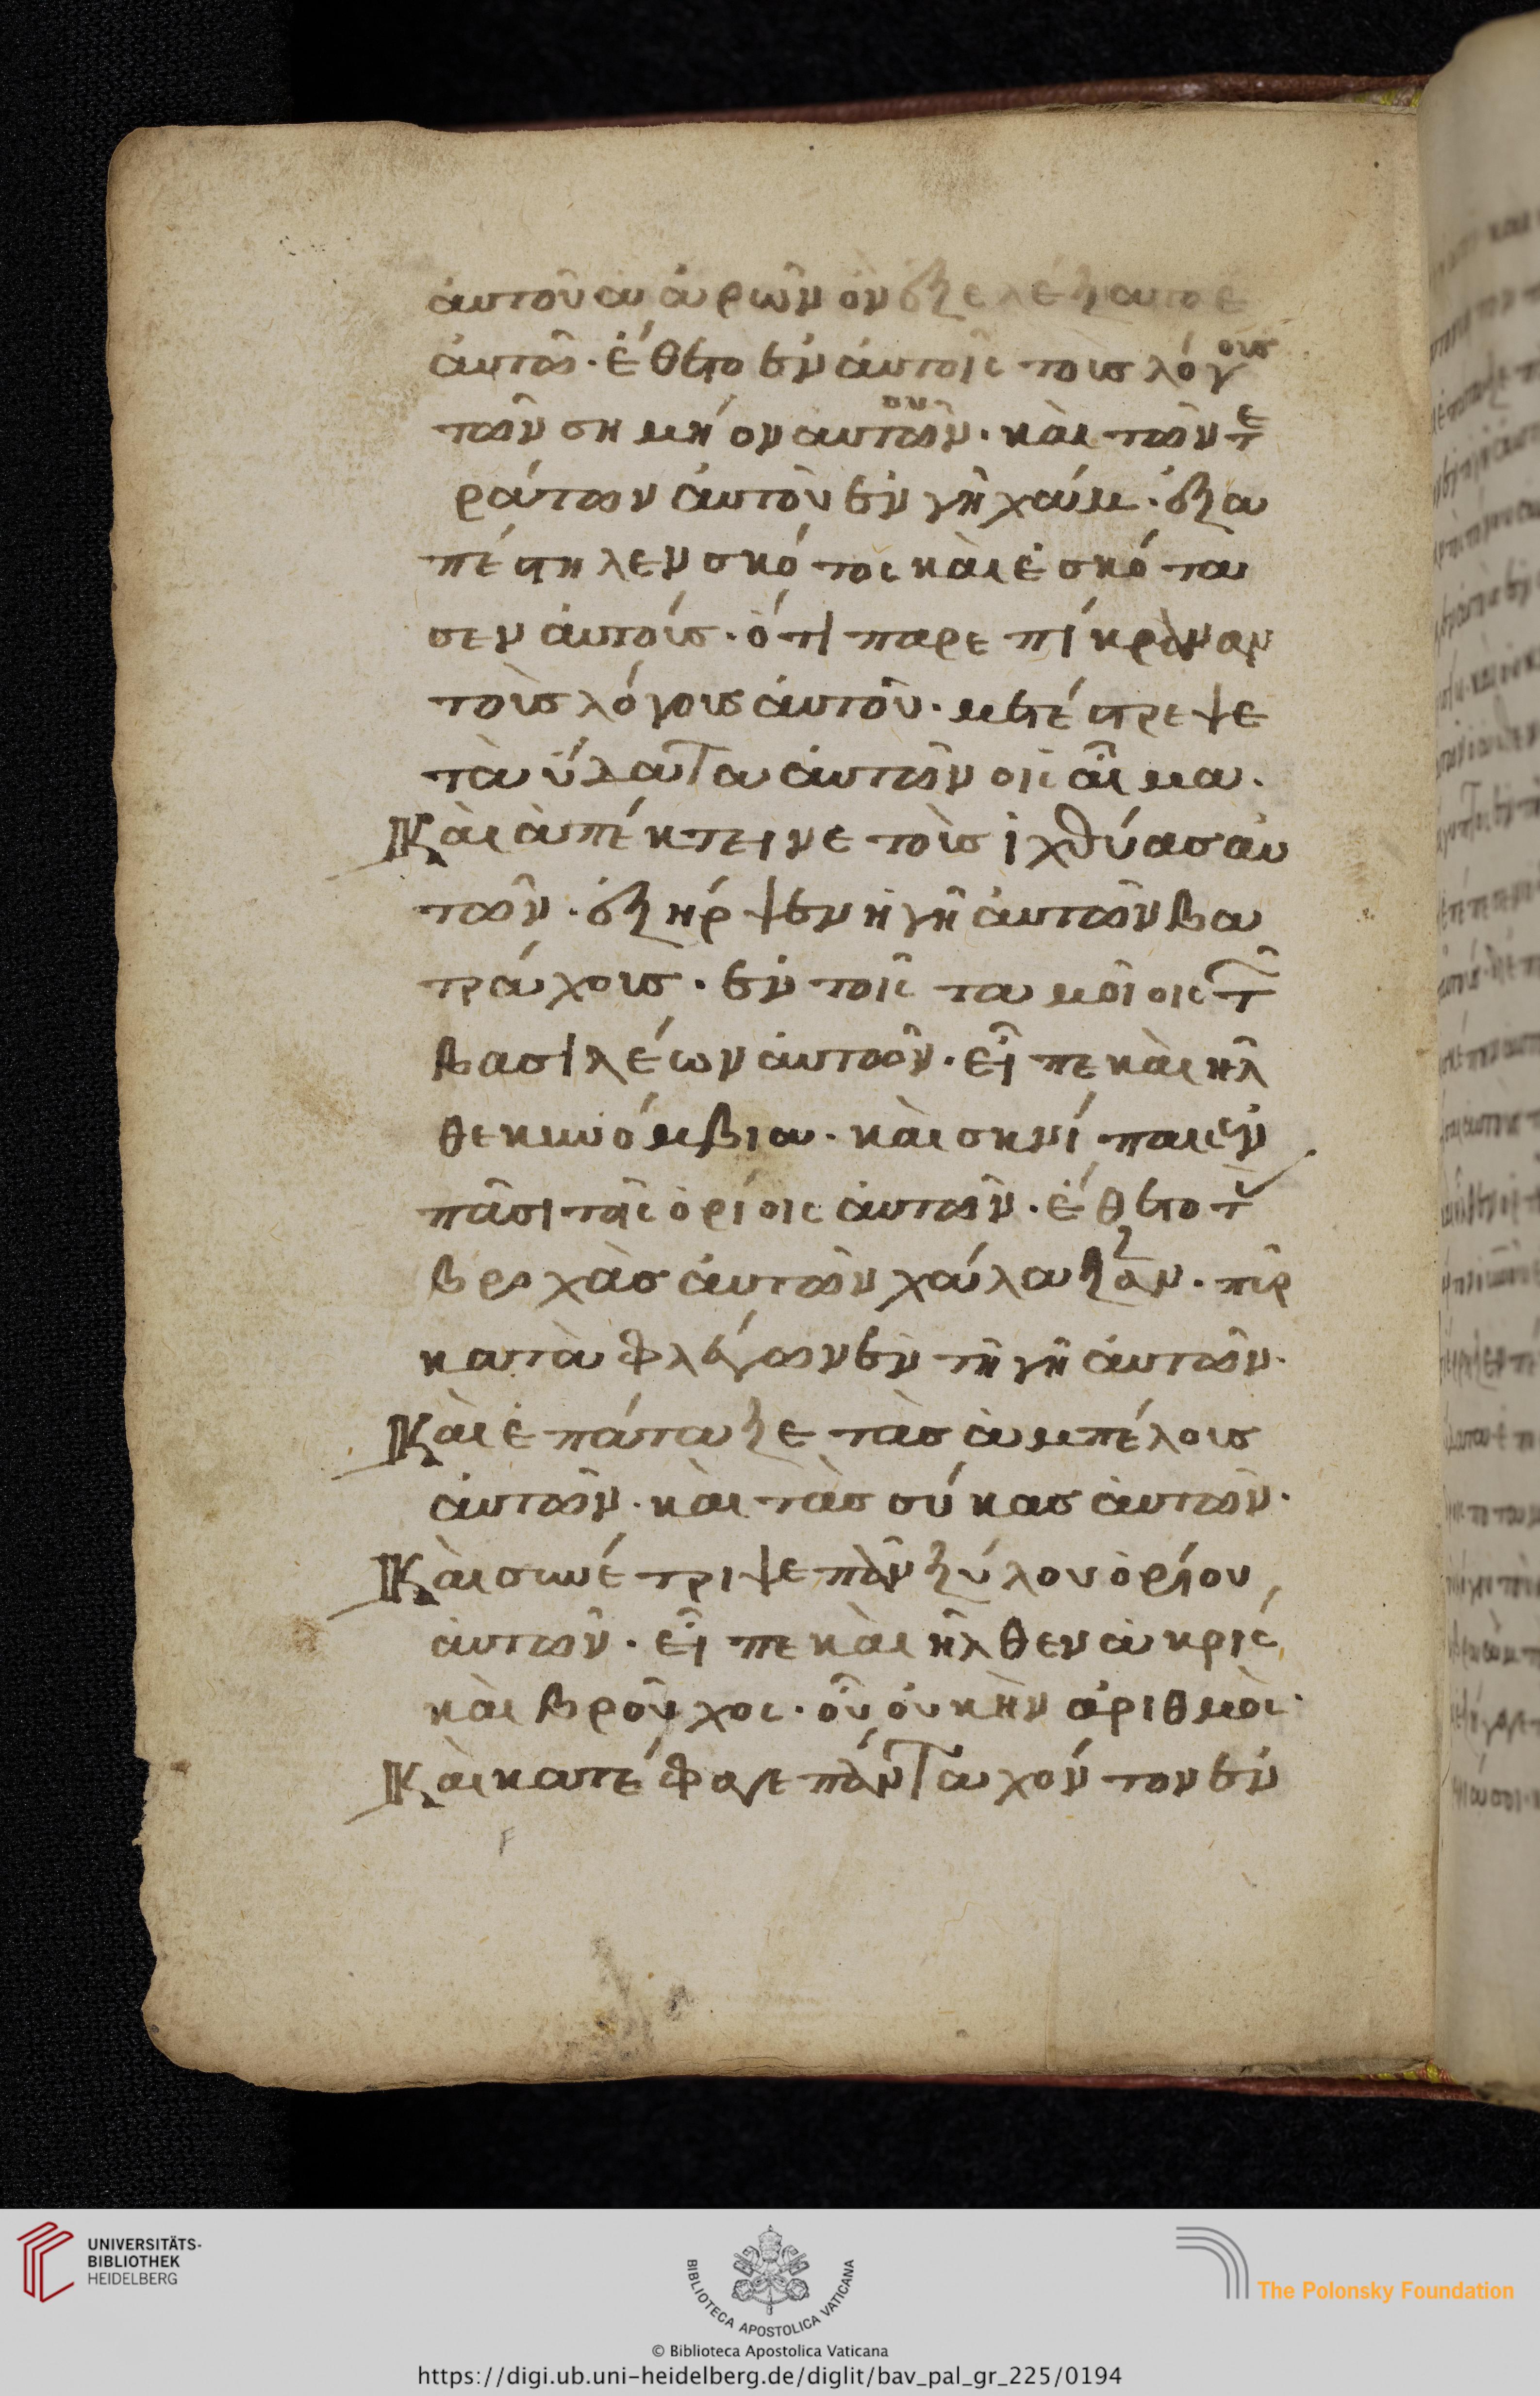 αὐτοῦ ἀαρὼν ὃν ἐξελέξατο ἑ
αυτῶ· ἔθετο ἐν αὐτοῖς τοὺς λόγους
τῶν σημήον αυτοῦ· καὶ τῶν τε
ράτων αὐτοῦ ἐν γῆ χάμ· ἐξα
πέστηλεν σκότος καὶ ἐσκότα
σεν αὐτοὺς· ὅτι παρεπίκραναν
τοὺς λόγους αὐτοῦ· μετέστρεψε
τὰ ὕδατα αὐτῶν οις αἷμα·
Καὶ ἀπέκτεινε τοὺς ἰχθύας αυ
τῶν· ἐξηρψεν ἡ γῆ αὐτῶν βα
τράχους· ἐν τοῖς ταμοίοις τῶν
βασιλέων αὐτῶν· εἶπε καὶ ἦλ
θε κυνόμβια· καὶ σκνίπαις ἐν
πᾶσι τοῖς ὁρίοις αὐτῶν· ἔθετο τὰς
βροχὰς αὐτῶν χάλαζαν· πῦρ
καταφλέγων ἐν τῆ γῆ αὐτῶν·
Καὶ ἐπάταξε τὰς ἀμπέλους
αὐτῶν· καὶ τὰς σύκας αὐτῶν·
Καὶ συνέτριψε πᾶν ξύλον ὁρίου
αὐτῶν· εἶπε καὶ ἦλθεν ἀκρὶς
καὶ βροῦχος· οὗ οὐκ ἦν ἀριθμὸς·
Καὶ κατέφαγε πάντα χόντον ἐν
F
UNIVERSITÄTS-
BIBLIOTHEK
HEIDELBERG
BIBLIOTECA APOSTOLICA VATICANA
The Polonsky Foundation
© Biblioteca Apostolica Vaticana
https://digi.ub.uni-heidelberg.de/diglit/bav_pal_gr_225/0194